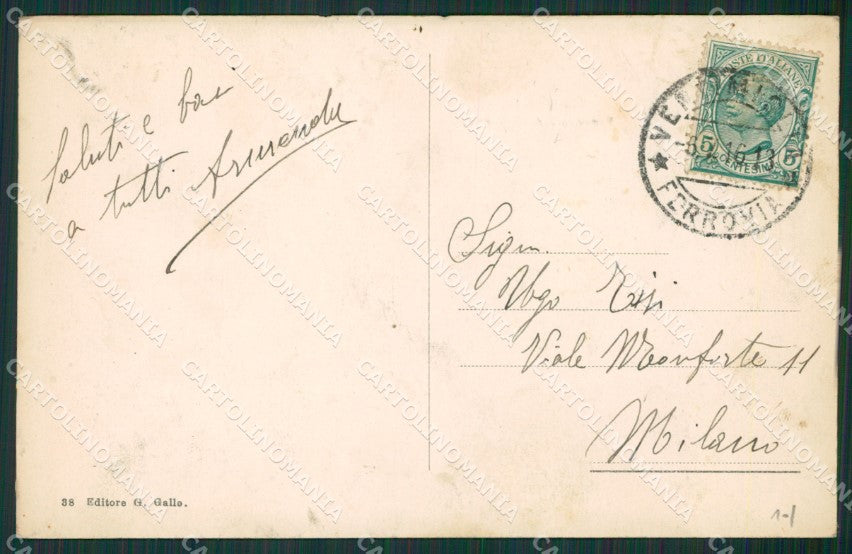 Saluti e baci
a tutti Armando
POSTE ITALIANE
5 5
CENTESIMI
-8. 1913
FERROVIA
Sign.
Ugo
Viale Monforte 11
Milano
38 Editore G. Gallo.
CARTOLINOMANIA